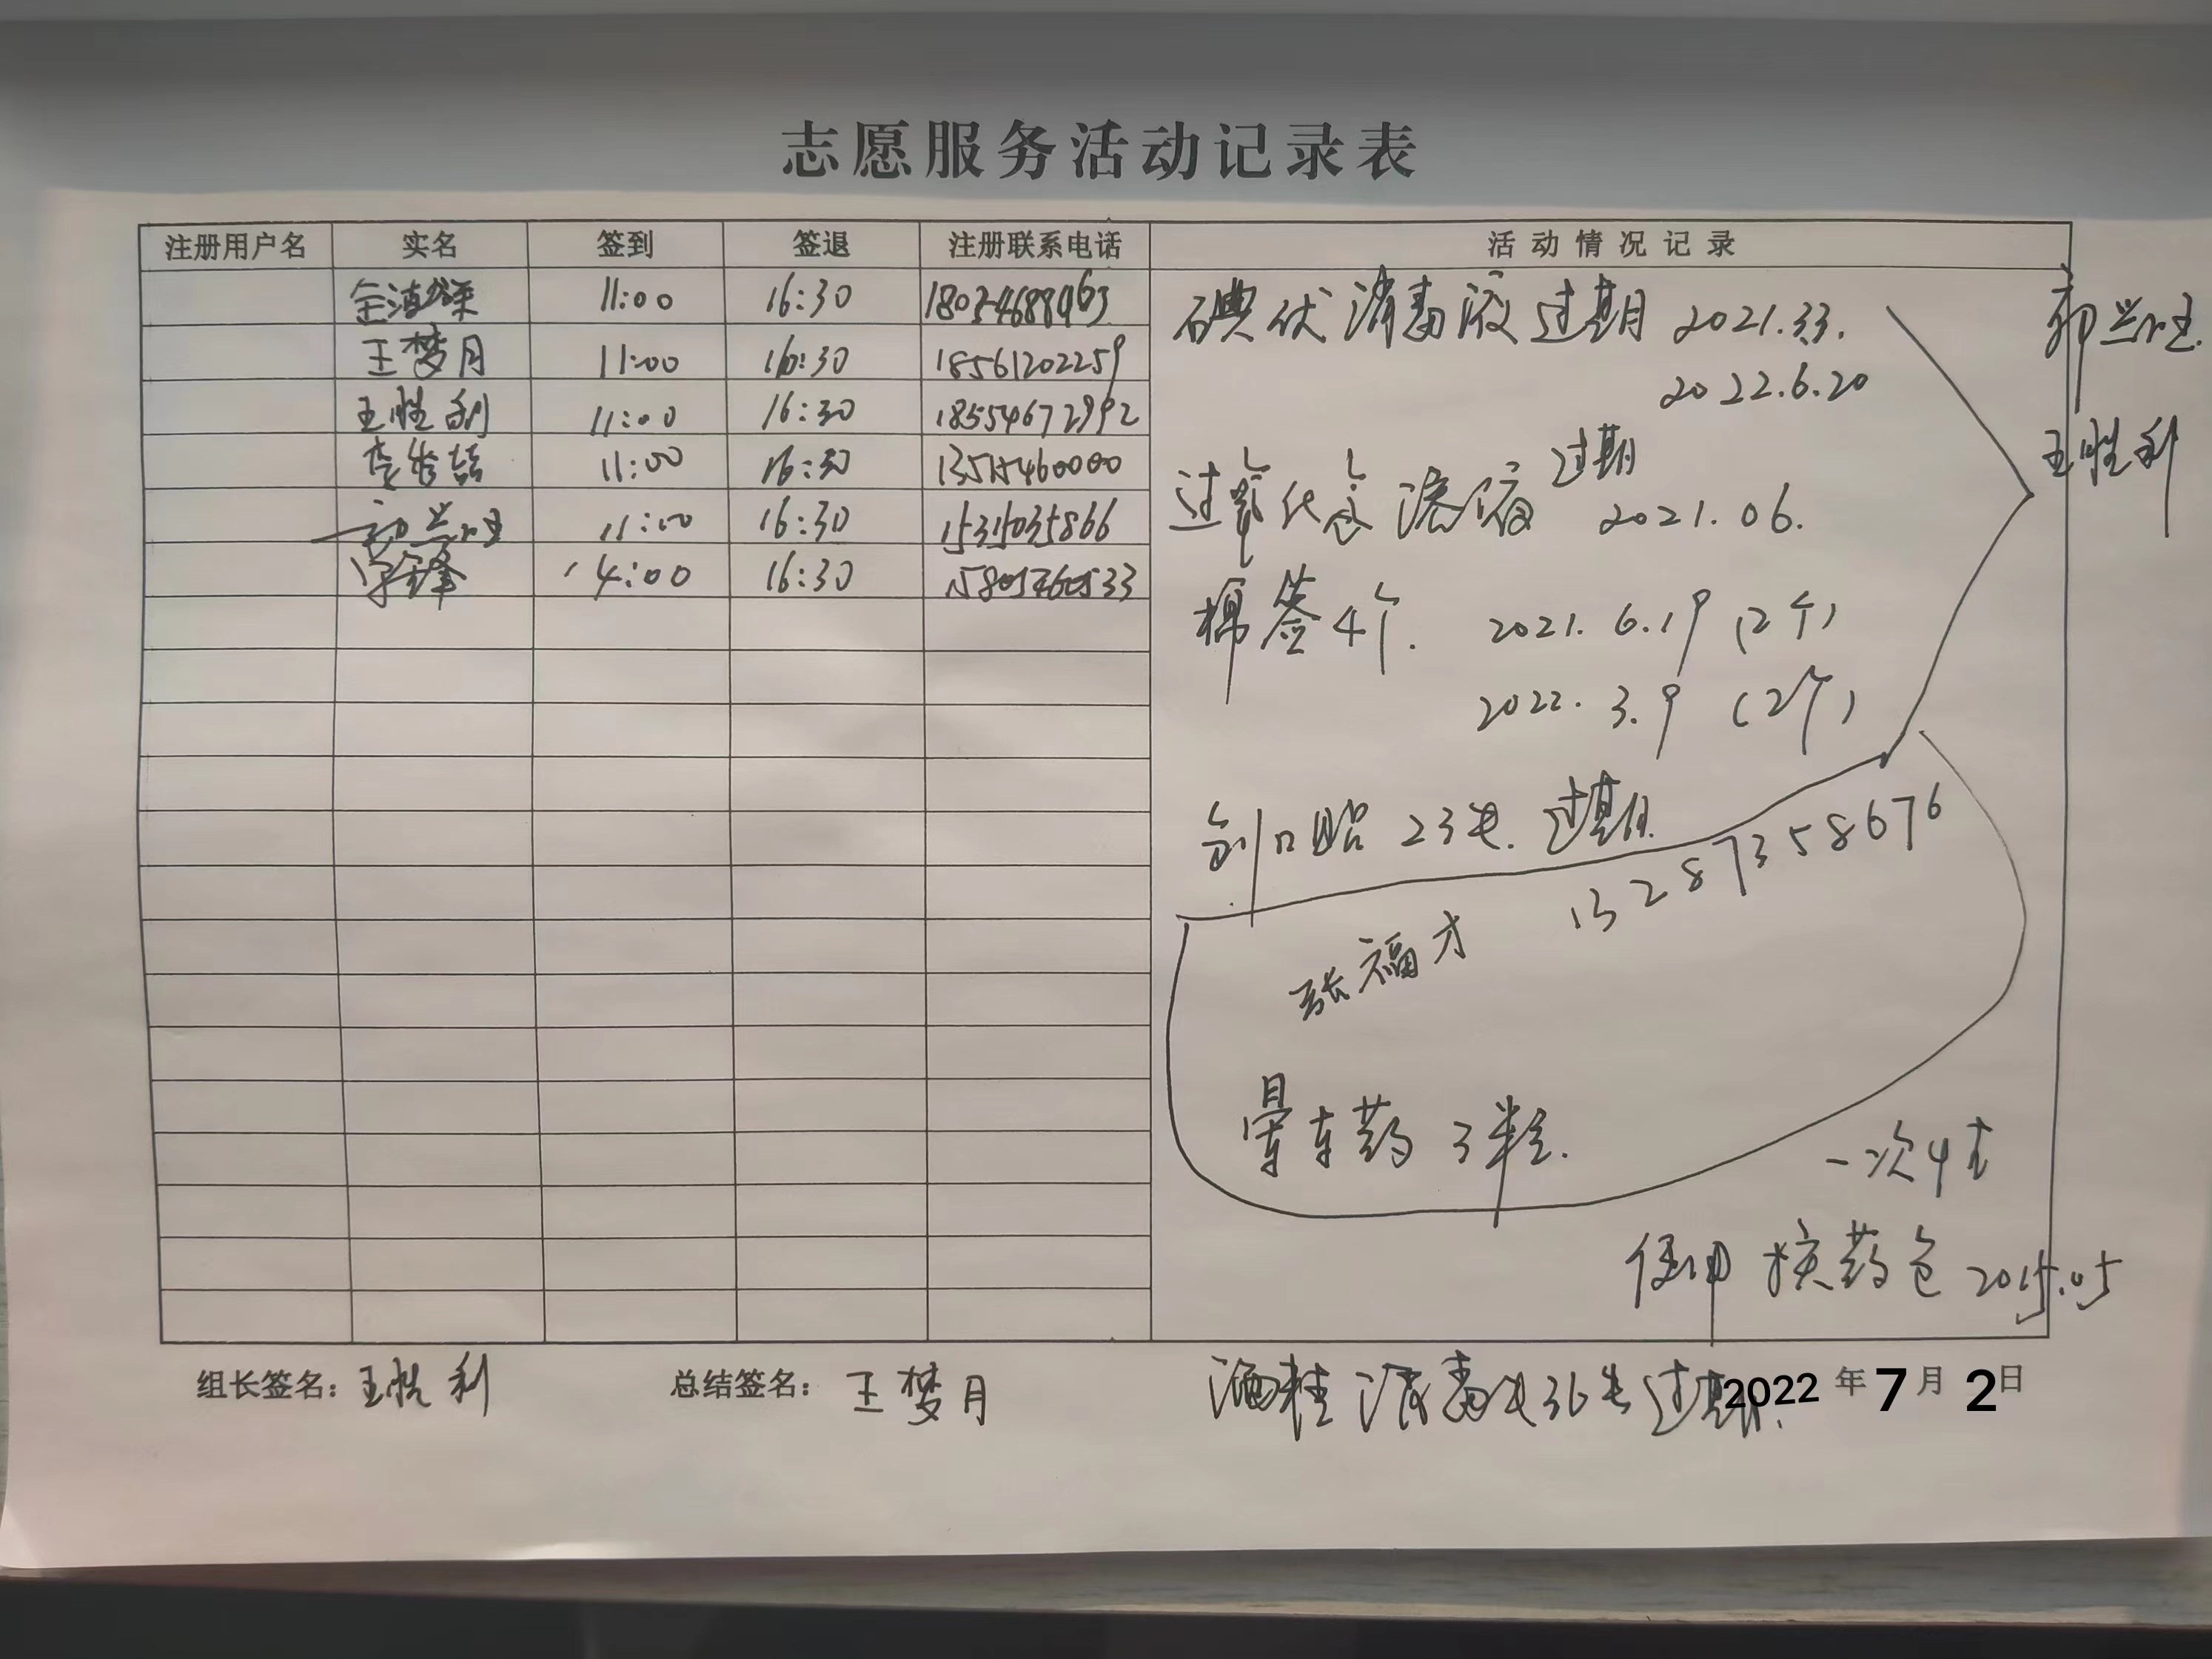 志愿服务活动记录表
注册用户名 实名 签到 签退 注册联系电话 活动情况记录
11:00 16:30
王梦月 11:00 16:30 18561202259
王胜利 11:00 16:30 18554672992
11:00 16:30 13515460000
11:00 16:30 15315035866
14:00 16:30
碘伏消毒液过期 2021.3.3.
2022.6.20
王胜利
过期
过氧化氢溶液 2021.06.
棉签4个. 2021.6.19 (2个)
2022.3.9 (2个)
创口贴 23 过期
13287358676
张福才
晕车药 3粒.
一次4
药包 2015.05
组长签名：王胜利 总结签名：王梦月
酒精消毒 36 过期. 2022年7月2日